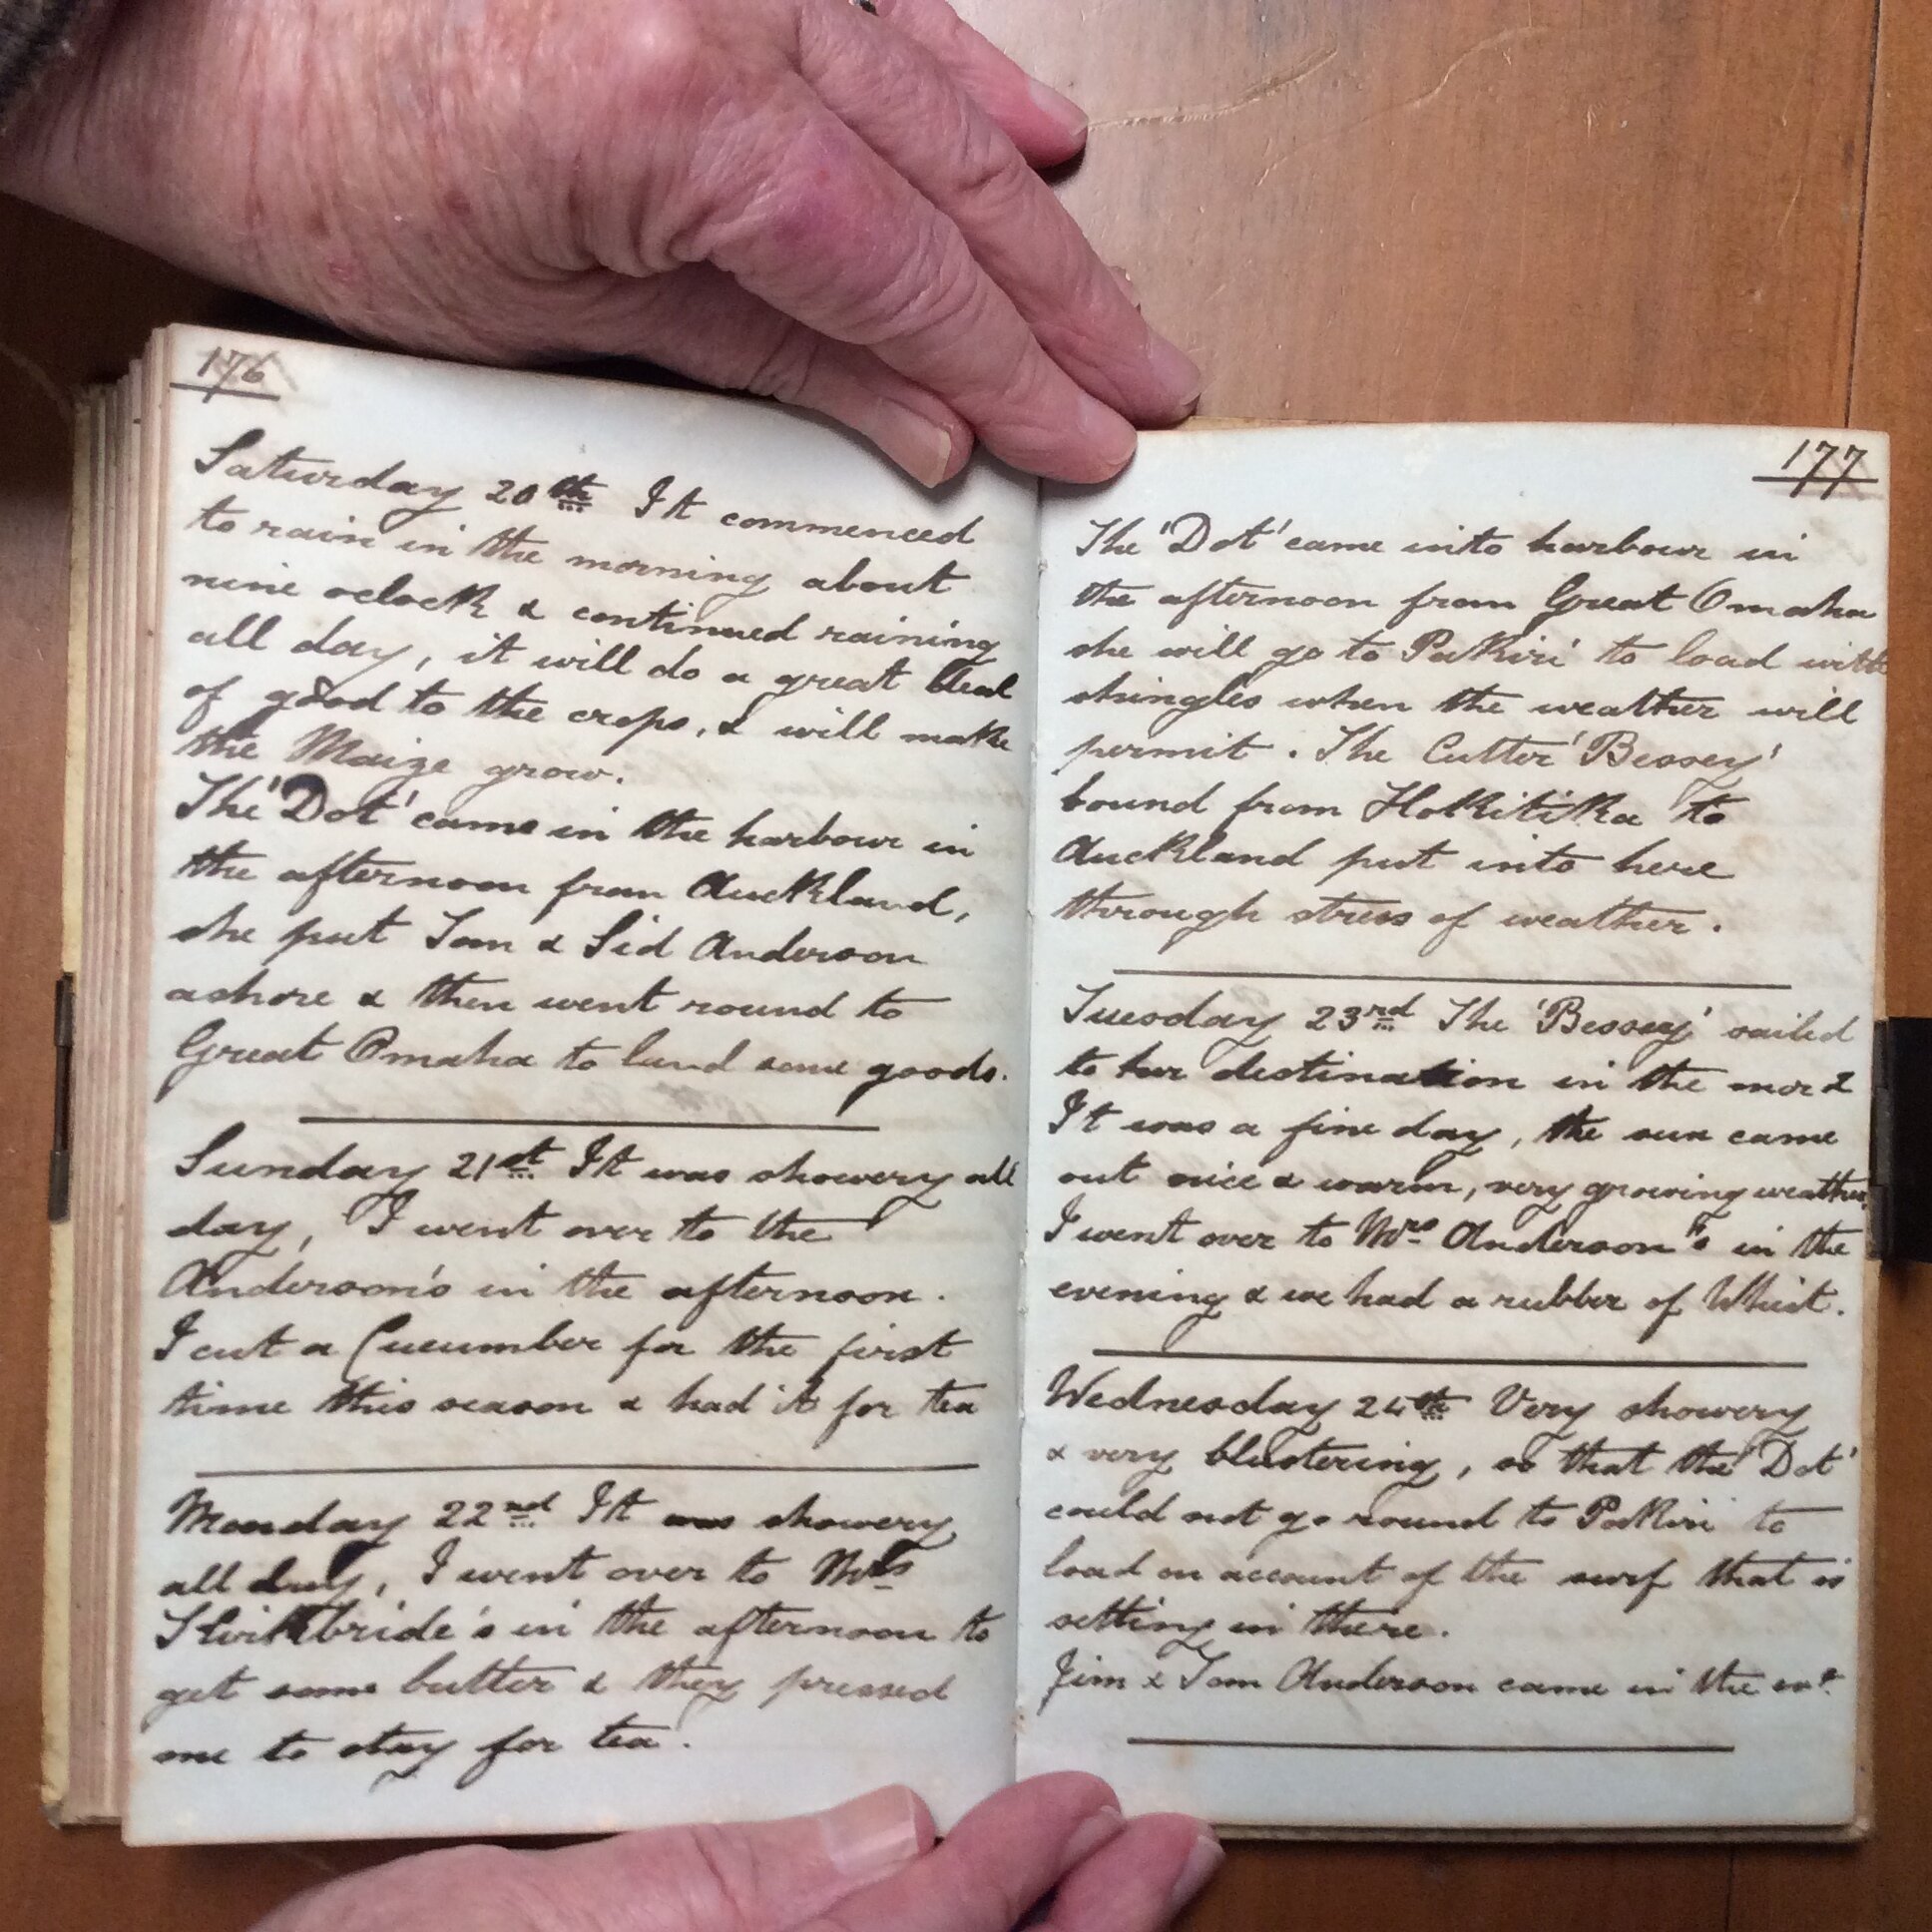 176
Saturday 20th It commenced
to rain in the morning about
nine oclock & continued raining
all day, it will do a great deal
of good to the crops, & will make
the Maize grow.
The 'Dot' came in the harbour in
the afternoon from Auckland,
she put Tom & Sid Anderson
ashore & then went round to
Great Omaha to land some goods.
Sunday 21st It was showery all
day, I went over to the
Anderson's in the afternoon.
I cut a Cucumber for the first
time this season & had it for tea
Monday 22nd It was showery
all day, I went over to Mrs
in the afternoon to
get some butter & they pressed
me to stay for tea.
177
The 'Dot' came into harbour in
the afternoon from Great Omaha
she will go to Pakiri to load with
shingles when the weather will
permit. The Cutter 'Bessey'
bound from Hokitika to
Auckland put into here
through stress of weather.
Tuesday 23rd The 'Bessey' sailed
to her destination in the
It was a fine day, the sun came
out nice & warm, very growing weather.
I went over to Mrs Anderson's in the
evening & we had a rubber of Whist.
Wednesday 24th Very showery
& very blustering, so that the 'Dot'
could not go round to Pakiri to
load on account of the surf that is
setting in there.
Jim & Tom Anderson came in the